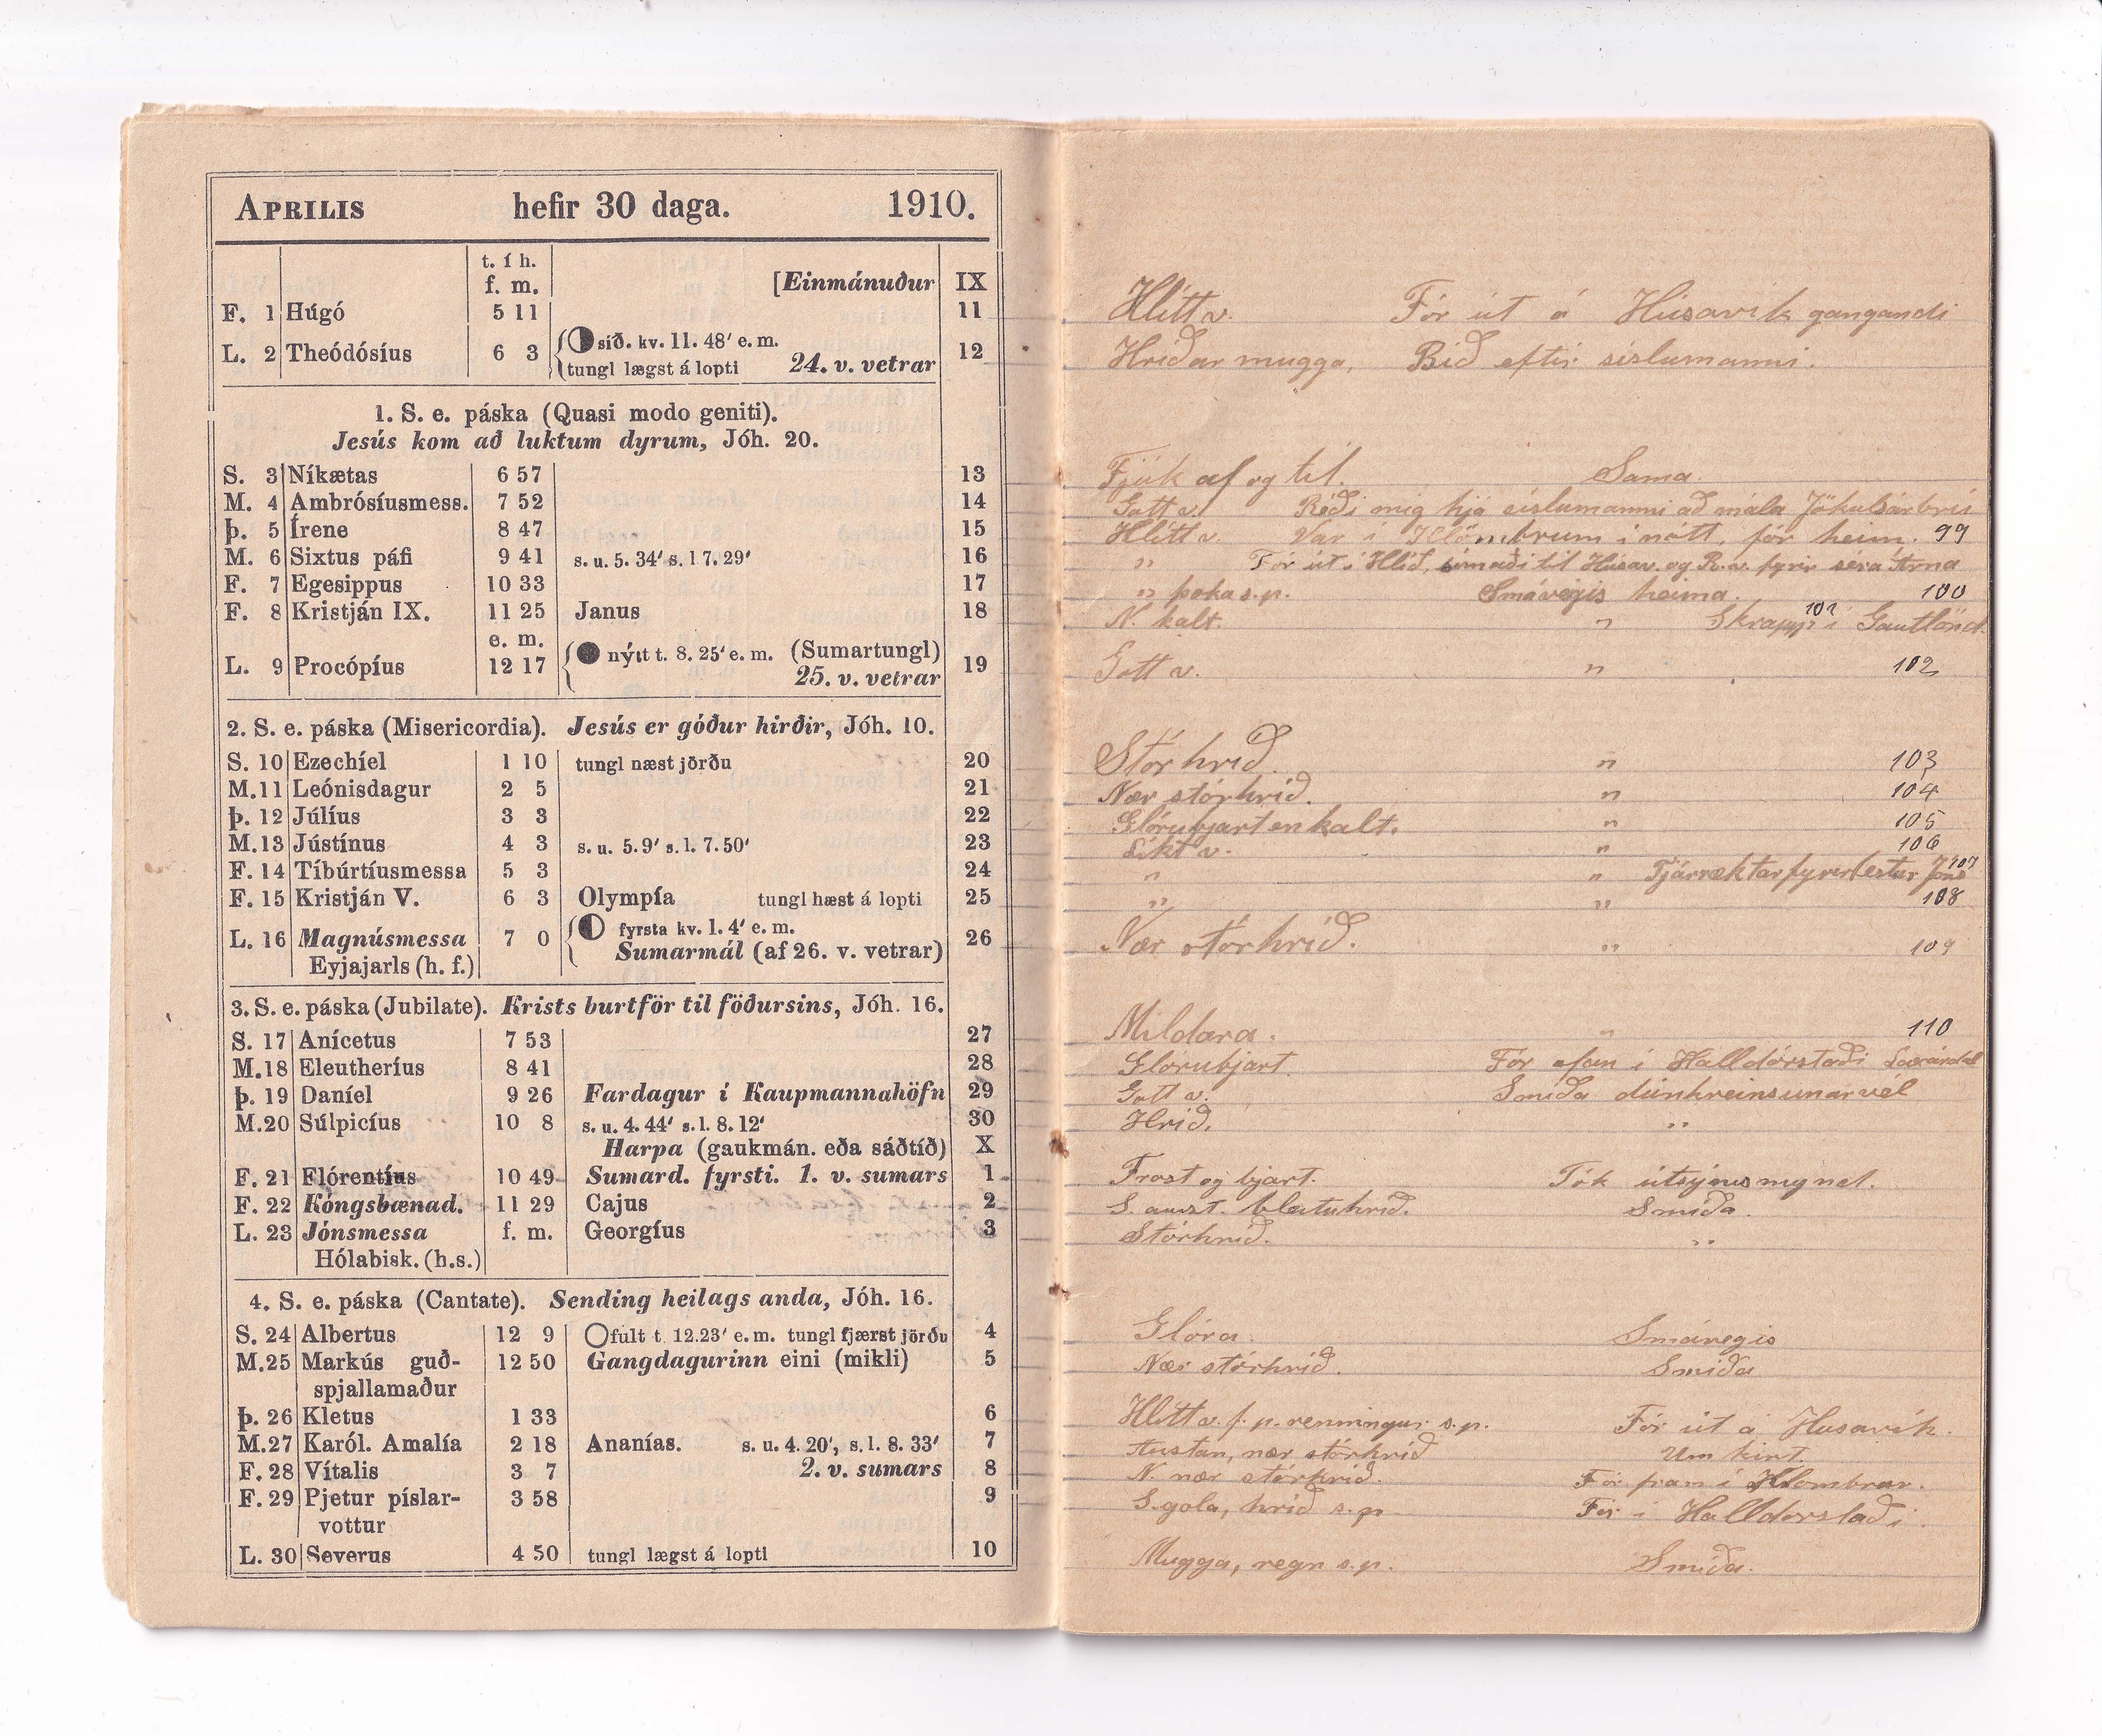 APRILIS hefir 30 daga. 1910.
t. í h.
f. m. [Einmánuður IX
F. 1 Húgó 5 11 11
L. 2 Theódósíus 6 3 síð. kv. 11. 48' e. m. 12
tungl lægst á lopti 24. v. vetrar
1. S. e. páska (Quasi modo geniti).
Jesús kom að luktum dyrum, Jóh. 20.
S. 3 Níkætas 6 57 13
M. 4 Ambrósíusmess. 7 52 14
Þ. 5 Írene 8 47 15
M. 6 Sixtus páfi 9 41 s. u. 5. 34' s. l 7. 29' 16
F. 7 Egesippus 10 33 17
F. 8 Kristján IX. 11 25 Janus 18
e. m.
L. 9 Procópíus 12 17 nýtt t. 8. 25' e. m. (Sumartungl) 19
25. v. vetrar
2. S. e. páska (Misericordia). Jesús er góður hirðir, Jóh. 10.
S. 10 Ezechíel 1 10 tungl næst jörðu 20
M. 11 Leónisdagur 2 5 21
Þ. 12 Júlíus 3 3 22
M. 13 Jústínus 4 3 s. u. 5. 9' s. l. 7. 50' 23
F. 14 Tíbúrtíusmessa 5 3 24
F. 15 Kristján V. 6 3 Olympía tungl hæst á lopti 25
L. 16 Magnúsmessa 7 0 fyrsta kv. 1. 4' e. m. 26
Eyjajarls (h. f.) Sumarmál (af 26. v. vetrar)
3. S. e. páska (Jubilate). Krists burtför til föðursins, Jóh. 16.
S. 17 Anícetus 7 53 27
M. 18 Eleutheríus 8 41 28
Þ. 19 Daníel 9 26 Fardagur í Kaupmannahöfn 29
M. 20 Súlpicíus 10 8 s. u. 4. 44' s. l. 8. 12' 30
Harpa (gaukmán. eða sáðtíð) X
F. 21 Flórentíus 10 49 Sumard. fyrsti. 1. v. sumars 1
F. 22 Kóngsbænad. 11 29 Cajus 2
L. 23 Jónsmessa f. m. Georgíus 3
Hólabisk. (h. s.)
4. S. e. páska (Cantate). Sending heilags anda, Jóh. 16.
S. 24 Albertus 12 9 fult t. 12. 23' e. m. tungl fjærst jörðu 4
M. 25 Markús guð- 12 50 Gangdagurinn eini (mikli) 5
spjallamaður
Þ. 26 Kletus 1 33 6
M. 27 Karól. Amalía 2 18 Ananías. s. u. 4. 20', s. l. 8. 33' 7
F. 28 Vítalis 3 7 2. v. sumars 8
F. 29 Pjetur píslar- 3 58 9
vottur
L. 30 Severus 4 50 tungl lægst á lopti 10
Hlítt v. Fór út á Húsavík gangandi
Hríðar mugga, Bið eftir síslumanni.
Fjúk af og til. Sama.
Gott v. Réði mig hjá síslumanni að mála Jökulsárbrú
Hlítt v. Var í Klömbrum í nótt, fór heim. 99
" Fór út í Hlíð, símaði til Húsav. og R.v. fyrir séra Árna
" þoka s.p. Smávegis heima. 100
N. kalt. " Skrapp í Gautlönd. 101
Gott v. " 102
Stórhríð. " 103
Nær stórhríð. " 104
Glórubjart en kalt. " 105
Líkt v. " 106
" " Fjárræktarfyrirlestur Jóns 107
" " 108
Nær stórhríð. " 109
Mildara. " 110
Glórubjart. Fór ofan í Halldórstaði Laxárdal
Gott v. Smíða dúnhreinsunarvél
Hríð. "
Frost og bjart. Tók útsýnismynd.
S. aust. bleituhríð. Smíða.
Stórhríð. "
Glóra. Smávegis
Nær stórhríð. Smíða
Hlítt v. f. p. renningur s.p. Fór út á Húsavík.
Austan, nær stórhríð Um kirt.
N. nær stórhríð. Fór fram í Klömbrur.
S. gola, hríð s.p Fór í Halldórstaði.
Mugga, regn s.p. Smíða.